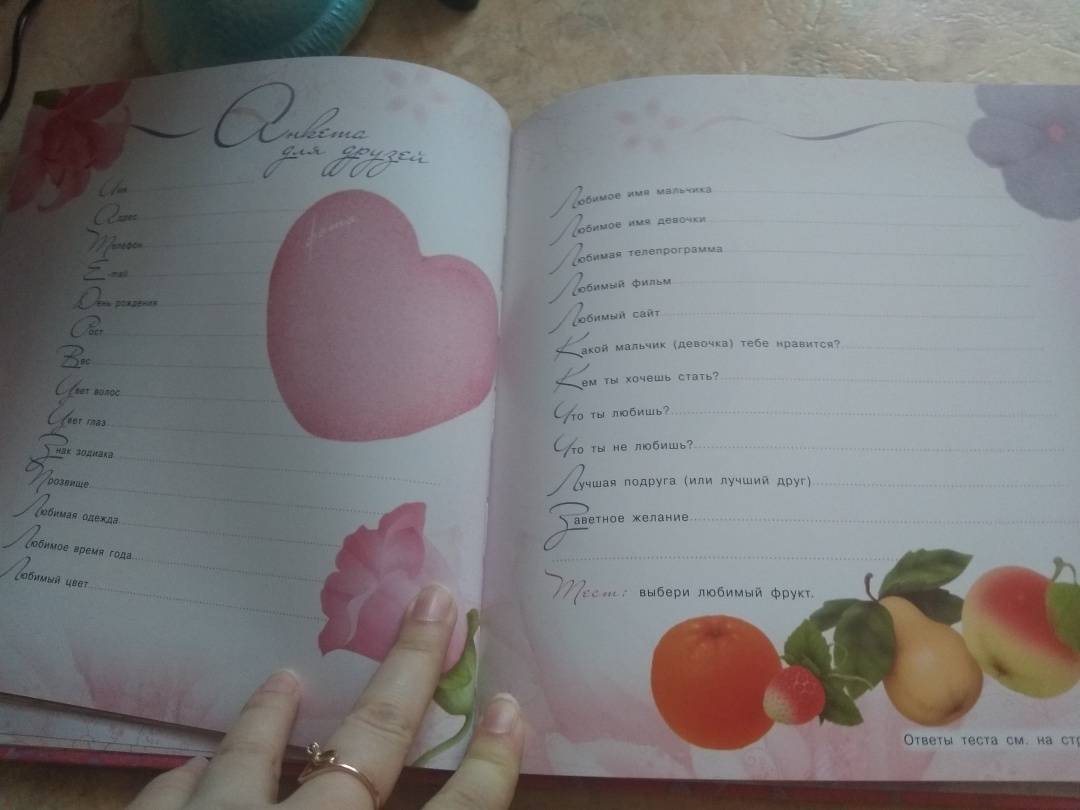 Анкета
для друзей
Имя
Адрес
Телефон
E-mail
День рождения
Рост
Вес
Цвет волос
Цвет глаз
Знак зодиака
Прозвище
Любимая одежда
Любимое время года
Любимый цвет
фото
Любимое имя мальчика
Любимое имя девочки
Любимая телепрограмма
Любимый фильм
Любимый сайт
Какой мальчик (девочка) тебе нравится?
Кем ты хочешь стать?
Что ты любишь?
Что ты не любишь?
Лучшая подруга (или лучший друг)
Заветное желание
Тест: выбери любимый фрукт.
Ответы теста см. на стр